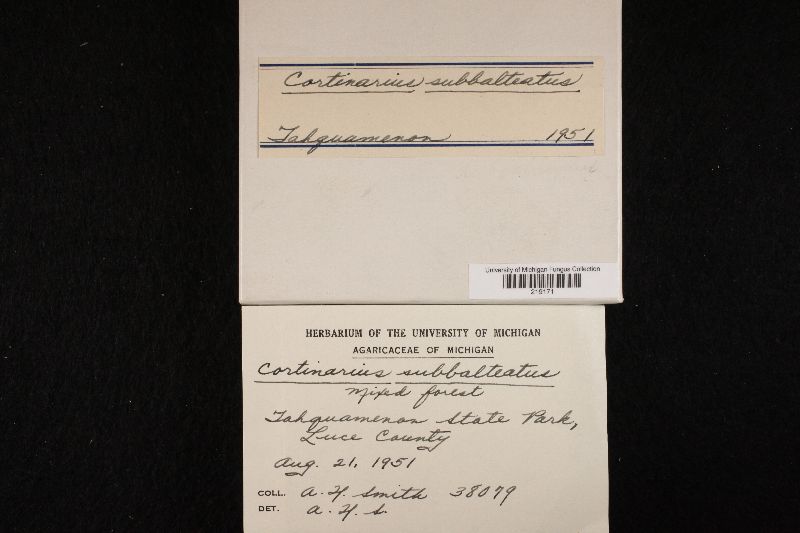 Cortinarius subbalteatus
Tahquamenon 1951
University of Michigan Fungus Collection
HERBARIUM OF THE UNIVERSITY OF MICHIGAN
AGARICACEAE OF MICHIGAN
Cortinarius subbalteatus
Mixed forest
Tahquamenon State Park,
Luce County
Aug. 21, 1951
COLL. A. H. Smith 38079
DET. A. H. S.